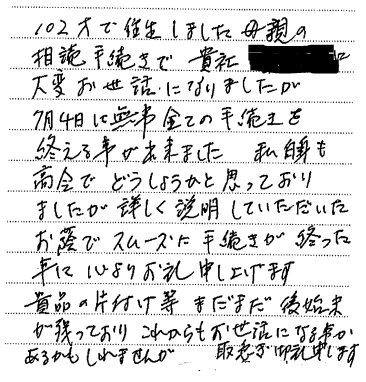 102才で往生しました母親の
相読手続きで 貴社
大変お世話になりましたが
7月4日に無事全ての手続きを
終える事が出来ました 私自身も
高令で どうしようかと思っており
ましたが 詳しく説明していただいた
お蔭でスムーズに手続きが終った
事に 心よりお礼申し上げます
貴品の片付け等 まだまだ 後始末
が残っており これからもお世話になる事が
あるかもしれませんが 取急ぎ御礼申します